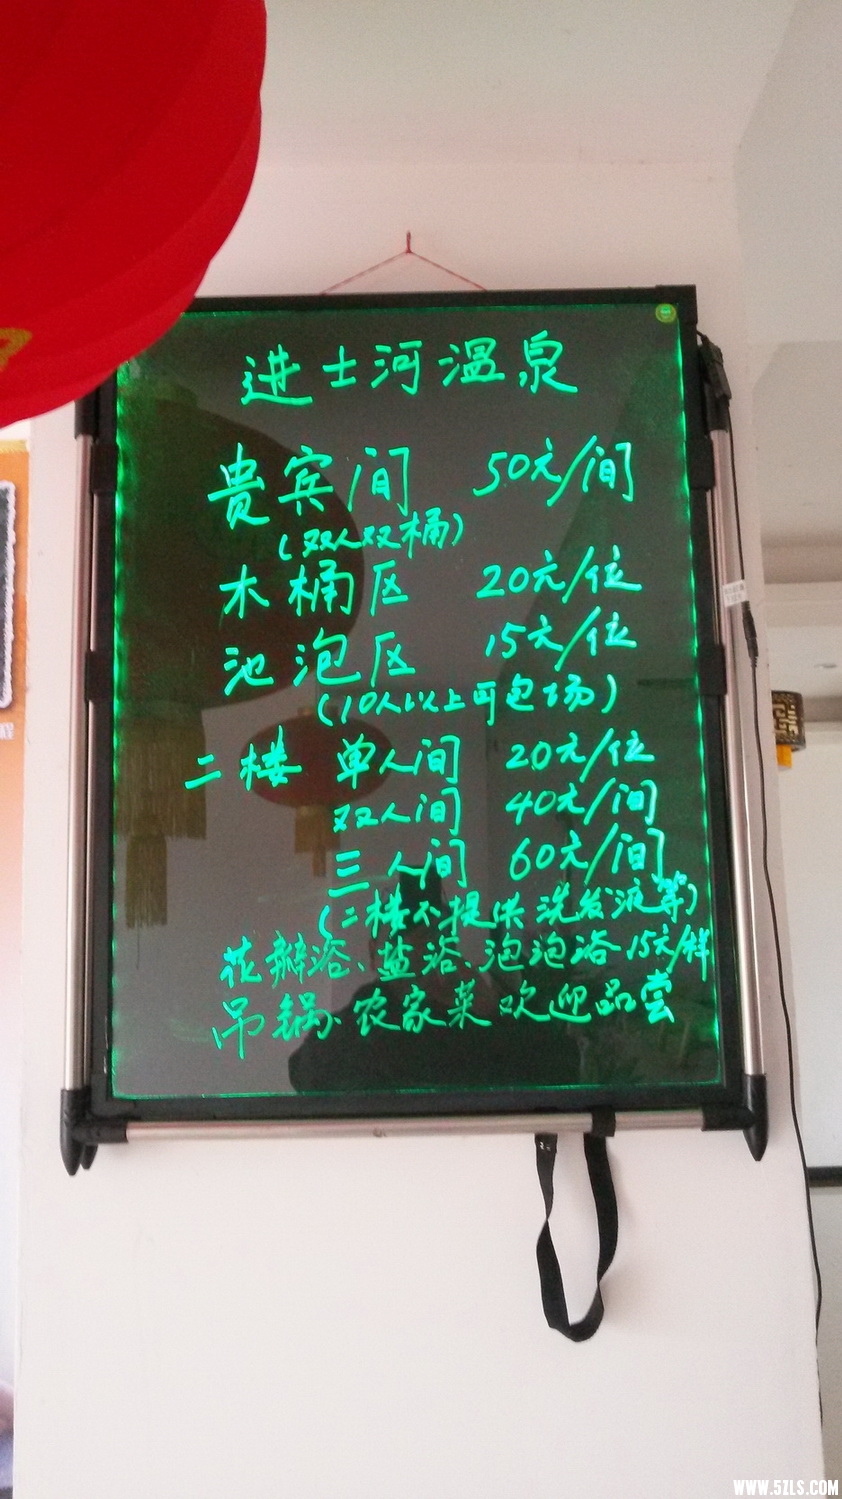 进士河温泉
贵宾间 50元/间
(双人双桶)
木桶区 20元/位
池泡区 15元/位
(10人以上可包场)
二楼 单人间 20元/位
双人间 40元/间
三人间 60元/间
(二楼不提供洗发液等)
花瓣浴、盐浴、泡泡浴15元/样
吊锅、农家菜欢迎品尝
WWW.5ZLS.COM